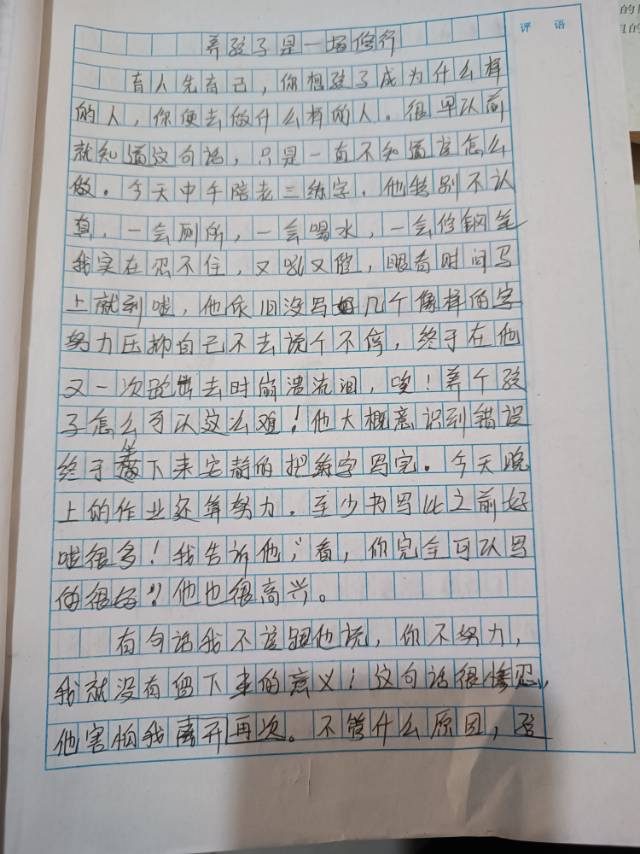 评 语
养孩子是一场修行
育人先育己，你想孩子成为什么样
的人，你便去做什么样的人。很早以前
就知道这句话，只是一直不知道该怎么
做。今天中午陪老三练字，他特别不认
真，一会厕所，一会喝水，一会修钢笔
我实在忍不住，又吼又瞪，眼看时间马
上就到啦，他依旧没写好几个像样的字
努力压抑自己不去说个不停，终于在他
又一次跑出去时崩溃流泪，唉！养个孩
子怎么可以这么难！他大概意识到错误
终于坐下来安静的把练字写完。今天晚
上的作业还算努力，至少书写比之前好
啦很多！我告诉他，"看，你完全可以写
的很好"！他也很高兴。
有句话我不该跟他说，你不努力，
我就没有留下来的意义！这句话很惨忍，
他害怕我离开再次。不管什么原因，孩